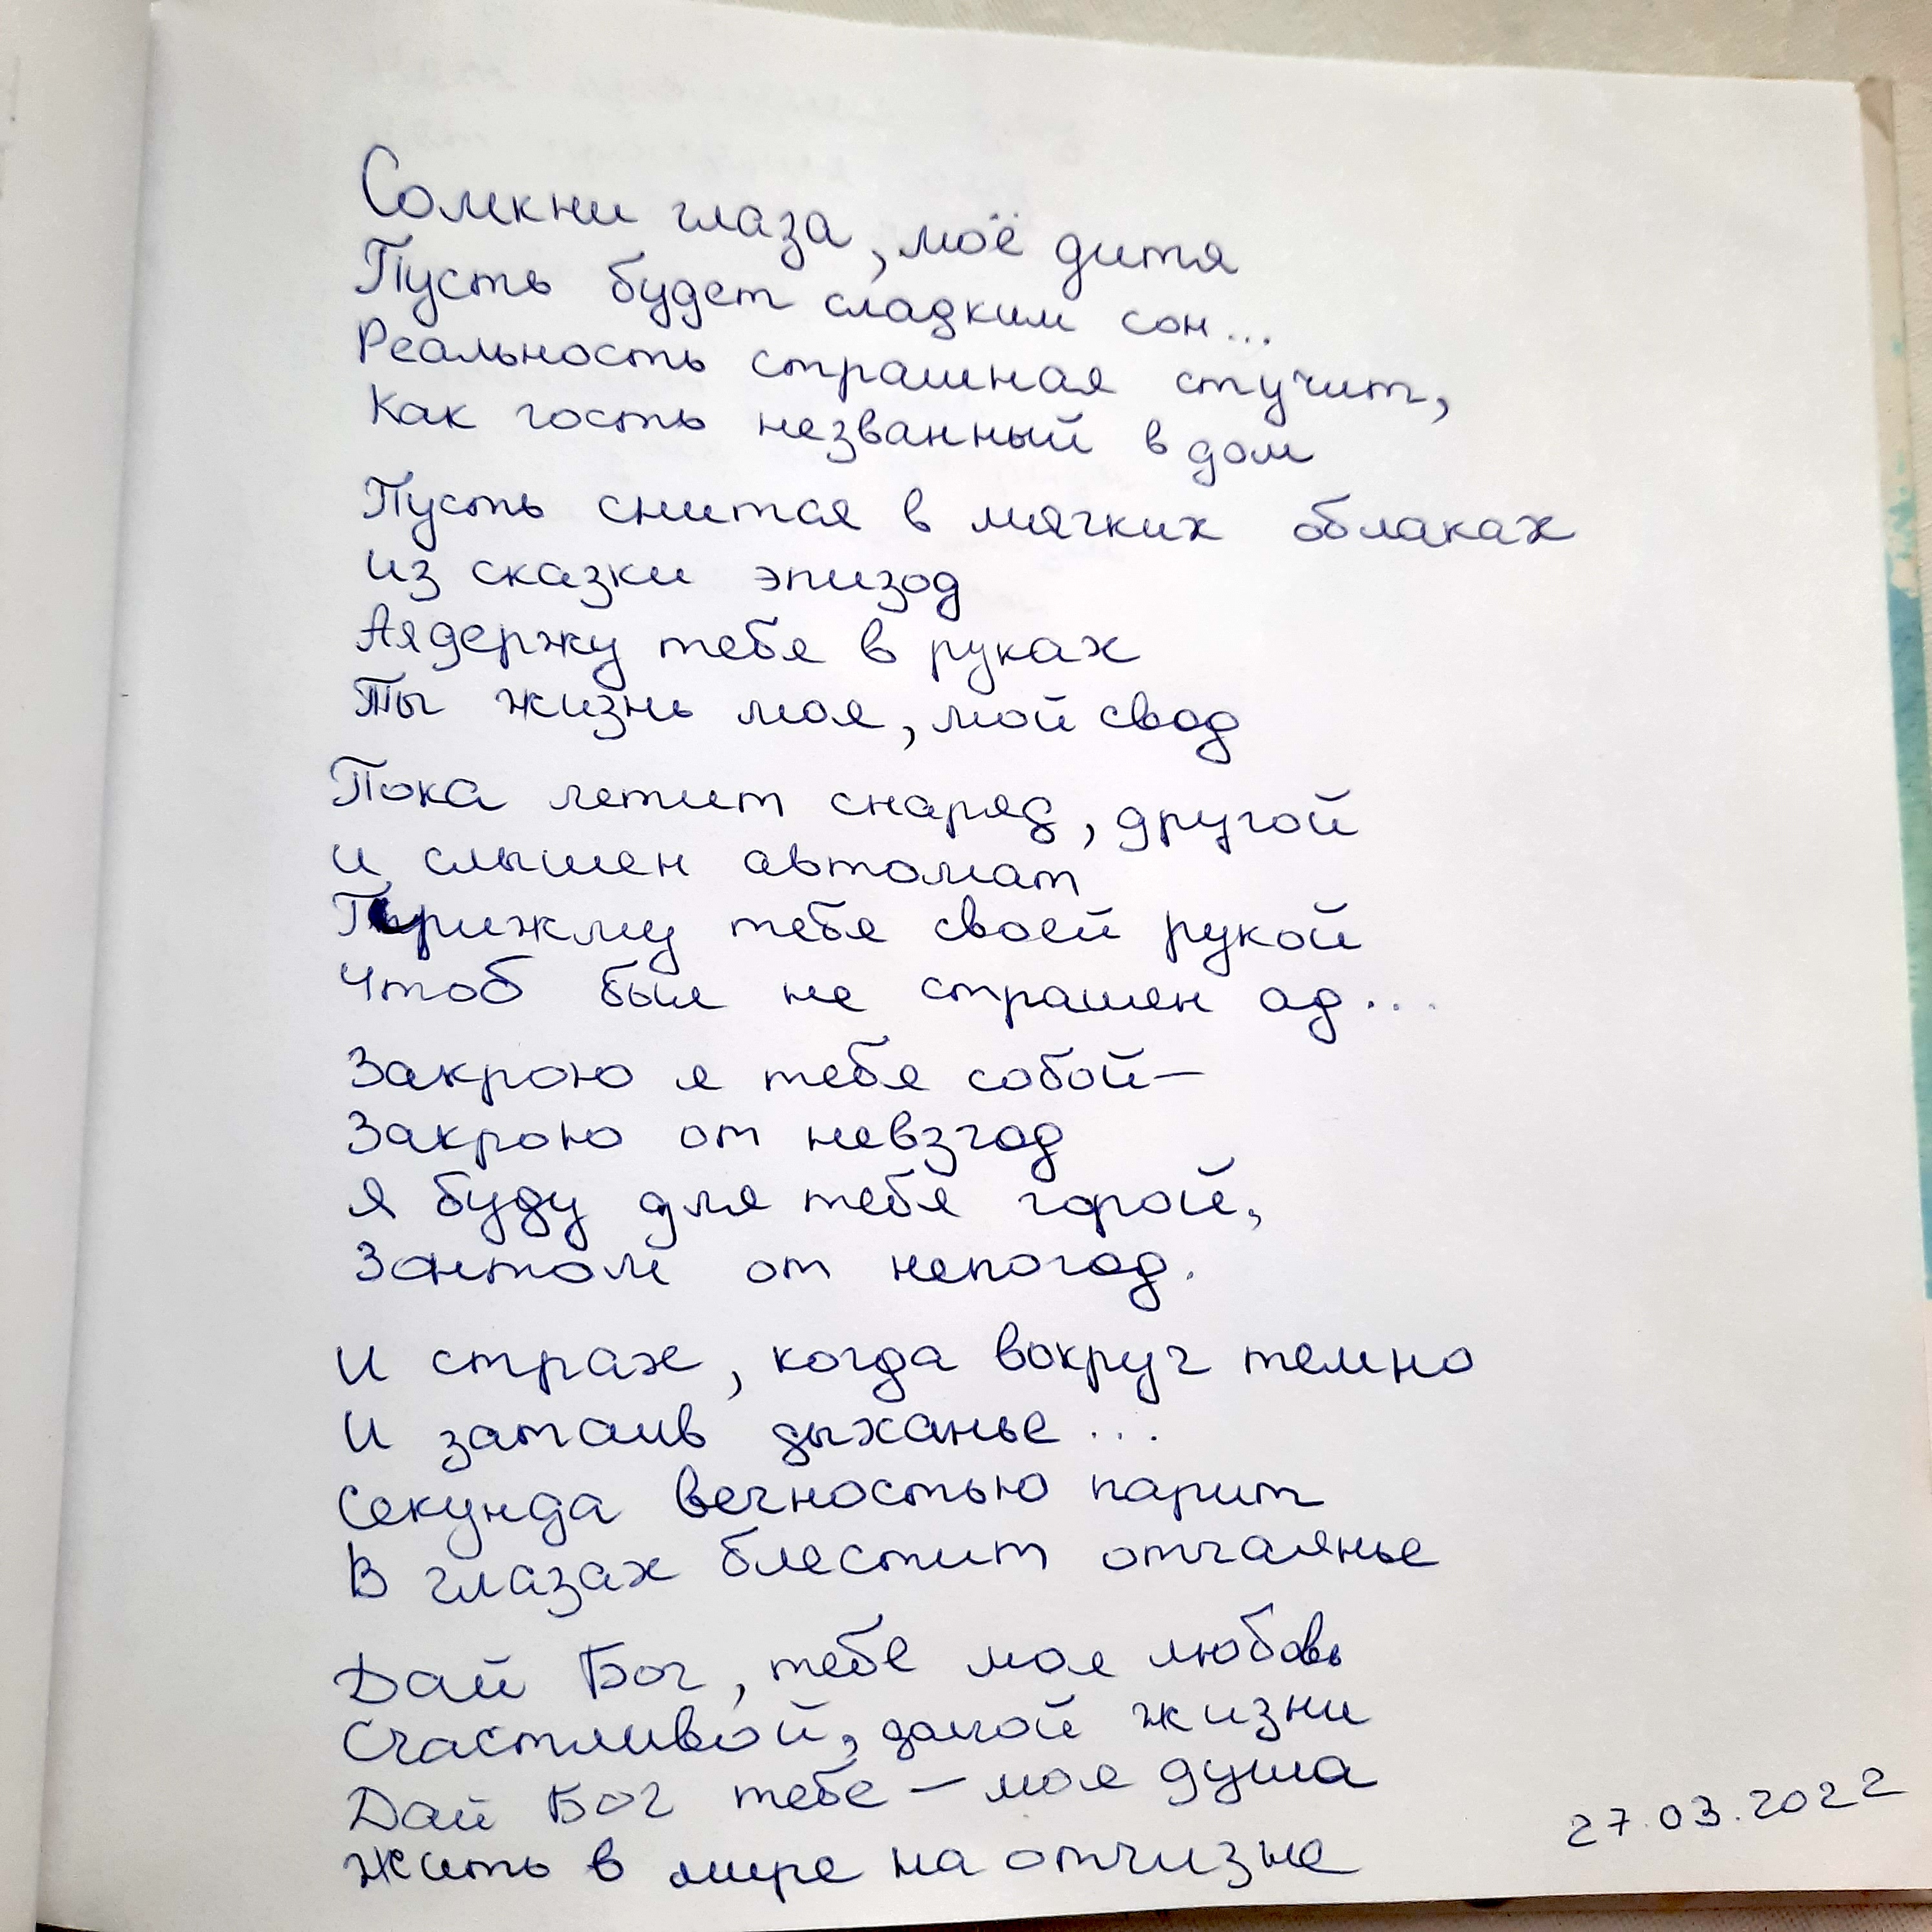 Сомкни глаза, моё дитя
Пусть будет сладким сон...
Реальность страшная стучит,
Как гость незванный в дом
Пусть снится в мягких облаках
из сказки эпизод
А я держу тебя в руках
Ты жизнь моя, мой свод
Пока летит снаряд, другой
и слышен автомат
Прижму тебя своей рукой
Чтоб был не страшен ад...
Закрою я тебя собой—
Закрою от невзгод
Я буду для тебя горой,
Зонтом от непогод.
И страх, когда вокруг темно
И затаив дыханье...
Секунда вечностью парит
В глазах блестит отчаянье
Дай Бог, тебе моя любовь
Счастливой, долгой жизни
Дай Бог тебе — моя душа
Жить в мире на отчизне
27.03.2022